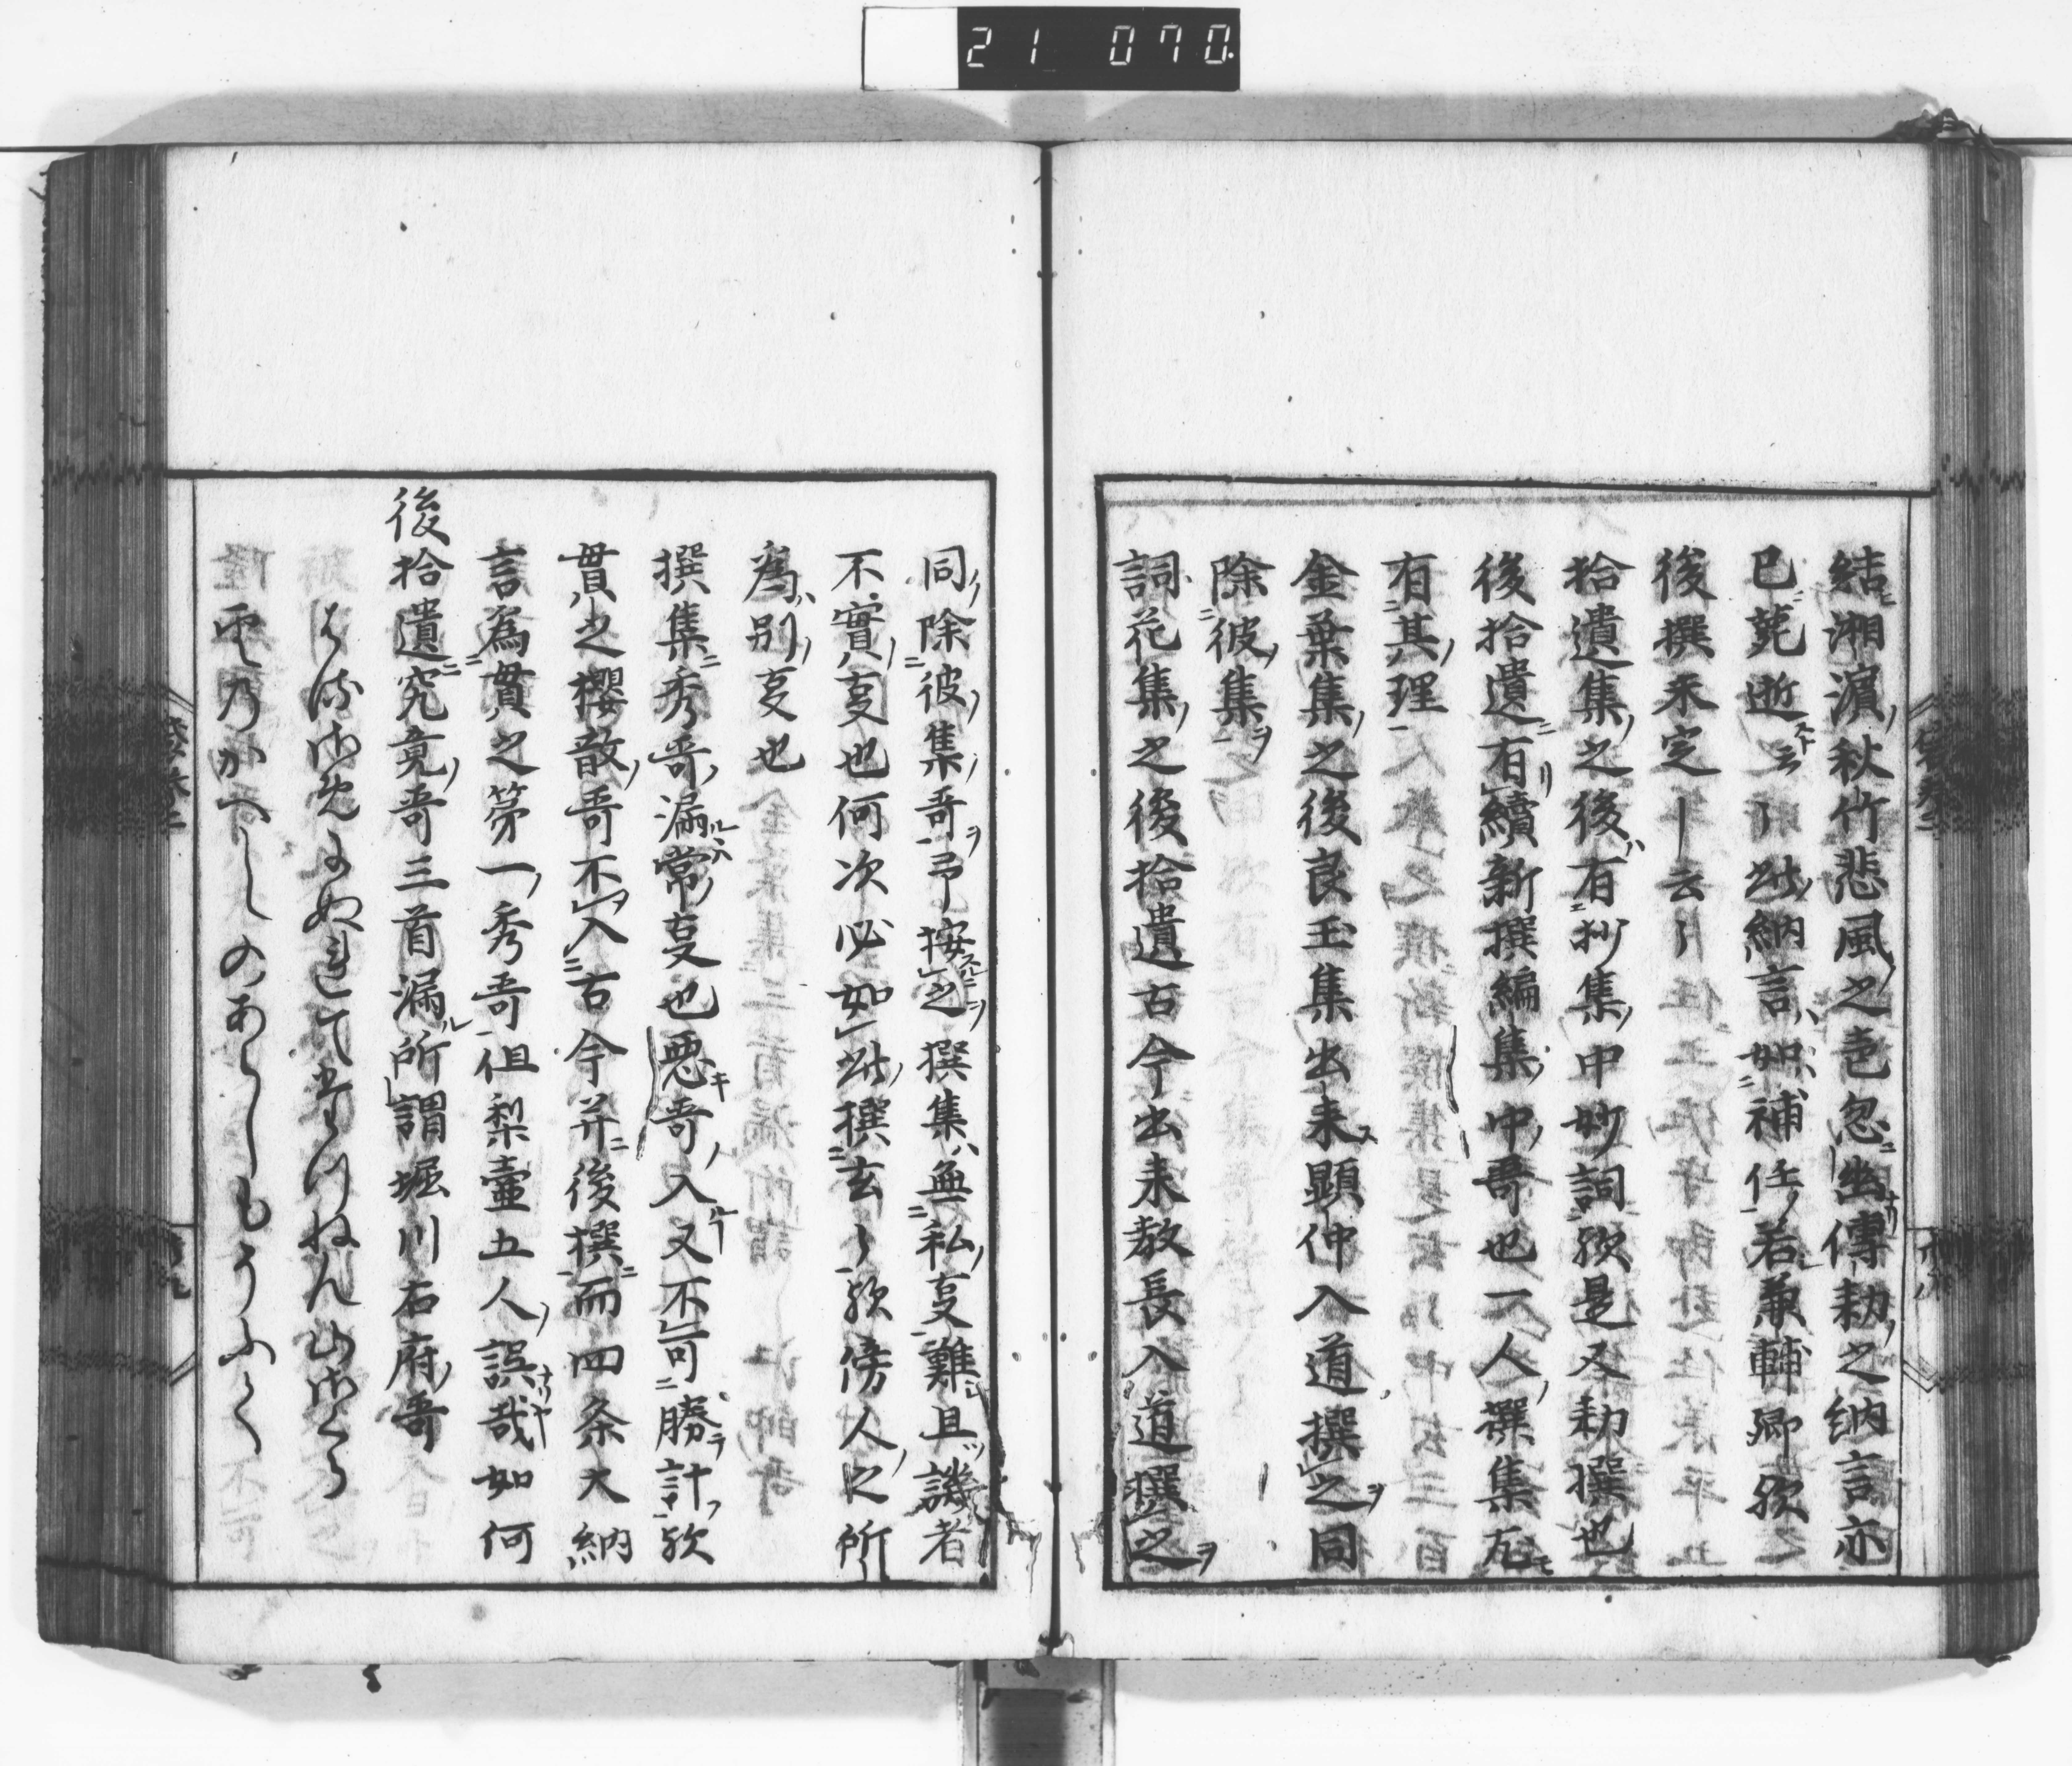 21 070.
結湘濵秋竹悲風之色忽幽傳勅之納言亦
已薨逝云〻此納言如補任若兼輔卿歟
後撰未定―云〻
拾遺集之後有抄集中妙詞歟是又勅撰也
後拾遺有續新撰編集中哥也一人撰集尤
有其理
金葉集之後良玉集出来顕仲入道撰之同
除彼集
詞花集之後拾遺古今出来教長入道撰之
同除彼集哥予按之撰集無私㕝難且譏者
不實㕝也何次必如此撰玄〻歟傍人之所
為別㕝也
撰集秀哥漏常㕝也悪哥入又不可勝計歟
貫之櫻散哥不入古今并後撰而四条大納
言為貫之第一秀哥但梨壷五人誤哉如何
後拾遺究竟哥三首漏所謂堀川右府哥
はる雨にぬれてたつねん山さくら
雲のかへしのあらしもそふく